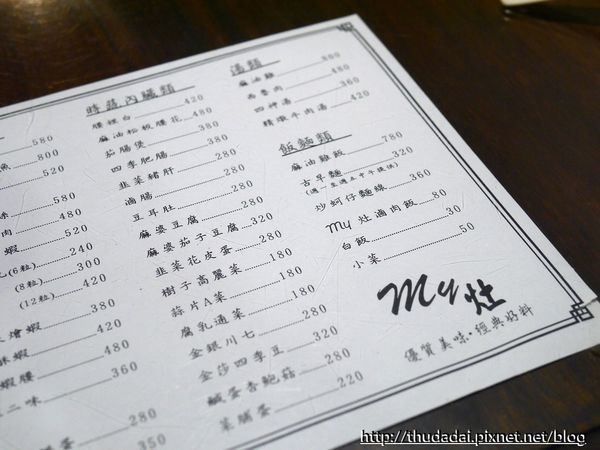 580
魚 800
520
480
肉 480
蝦 520
(6粒) 240
(8粒) 300
(12粒) 420
燴蝦 420
酥蝦 480
蝦腰 360
二味
280
350
時蔬內臟類
腰裡白 420
麻油松板腰花 480
茄腸煲 380
四季肥腸 380
韭菜豬肝 280
滷腸 280
豆耳肚 280
麻婆豆腐 280
麻婆茄子豆腐 320
韭菜花皮蛋 280
樹子高麗菜 180
蒜片A菜 180
腐乳通菜 180
金銀川七 280
金莎四季豆 320
鹹蛋杏鮑菇 280
菜脯蛋 220
湯類
麻油雞 800
西魯肉 480
四神湯 360
精燉牛肉湯 420
飯麵類
麻油雞飯 780
古早麵 320
(週一至週五中午提供)
炒蚵仔麵線 360
My 灶滷肉飯 80
白飯 30
小菜 50
My 灶
優質美味·經典好料
http://thudadai.pixnet.net/blog